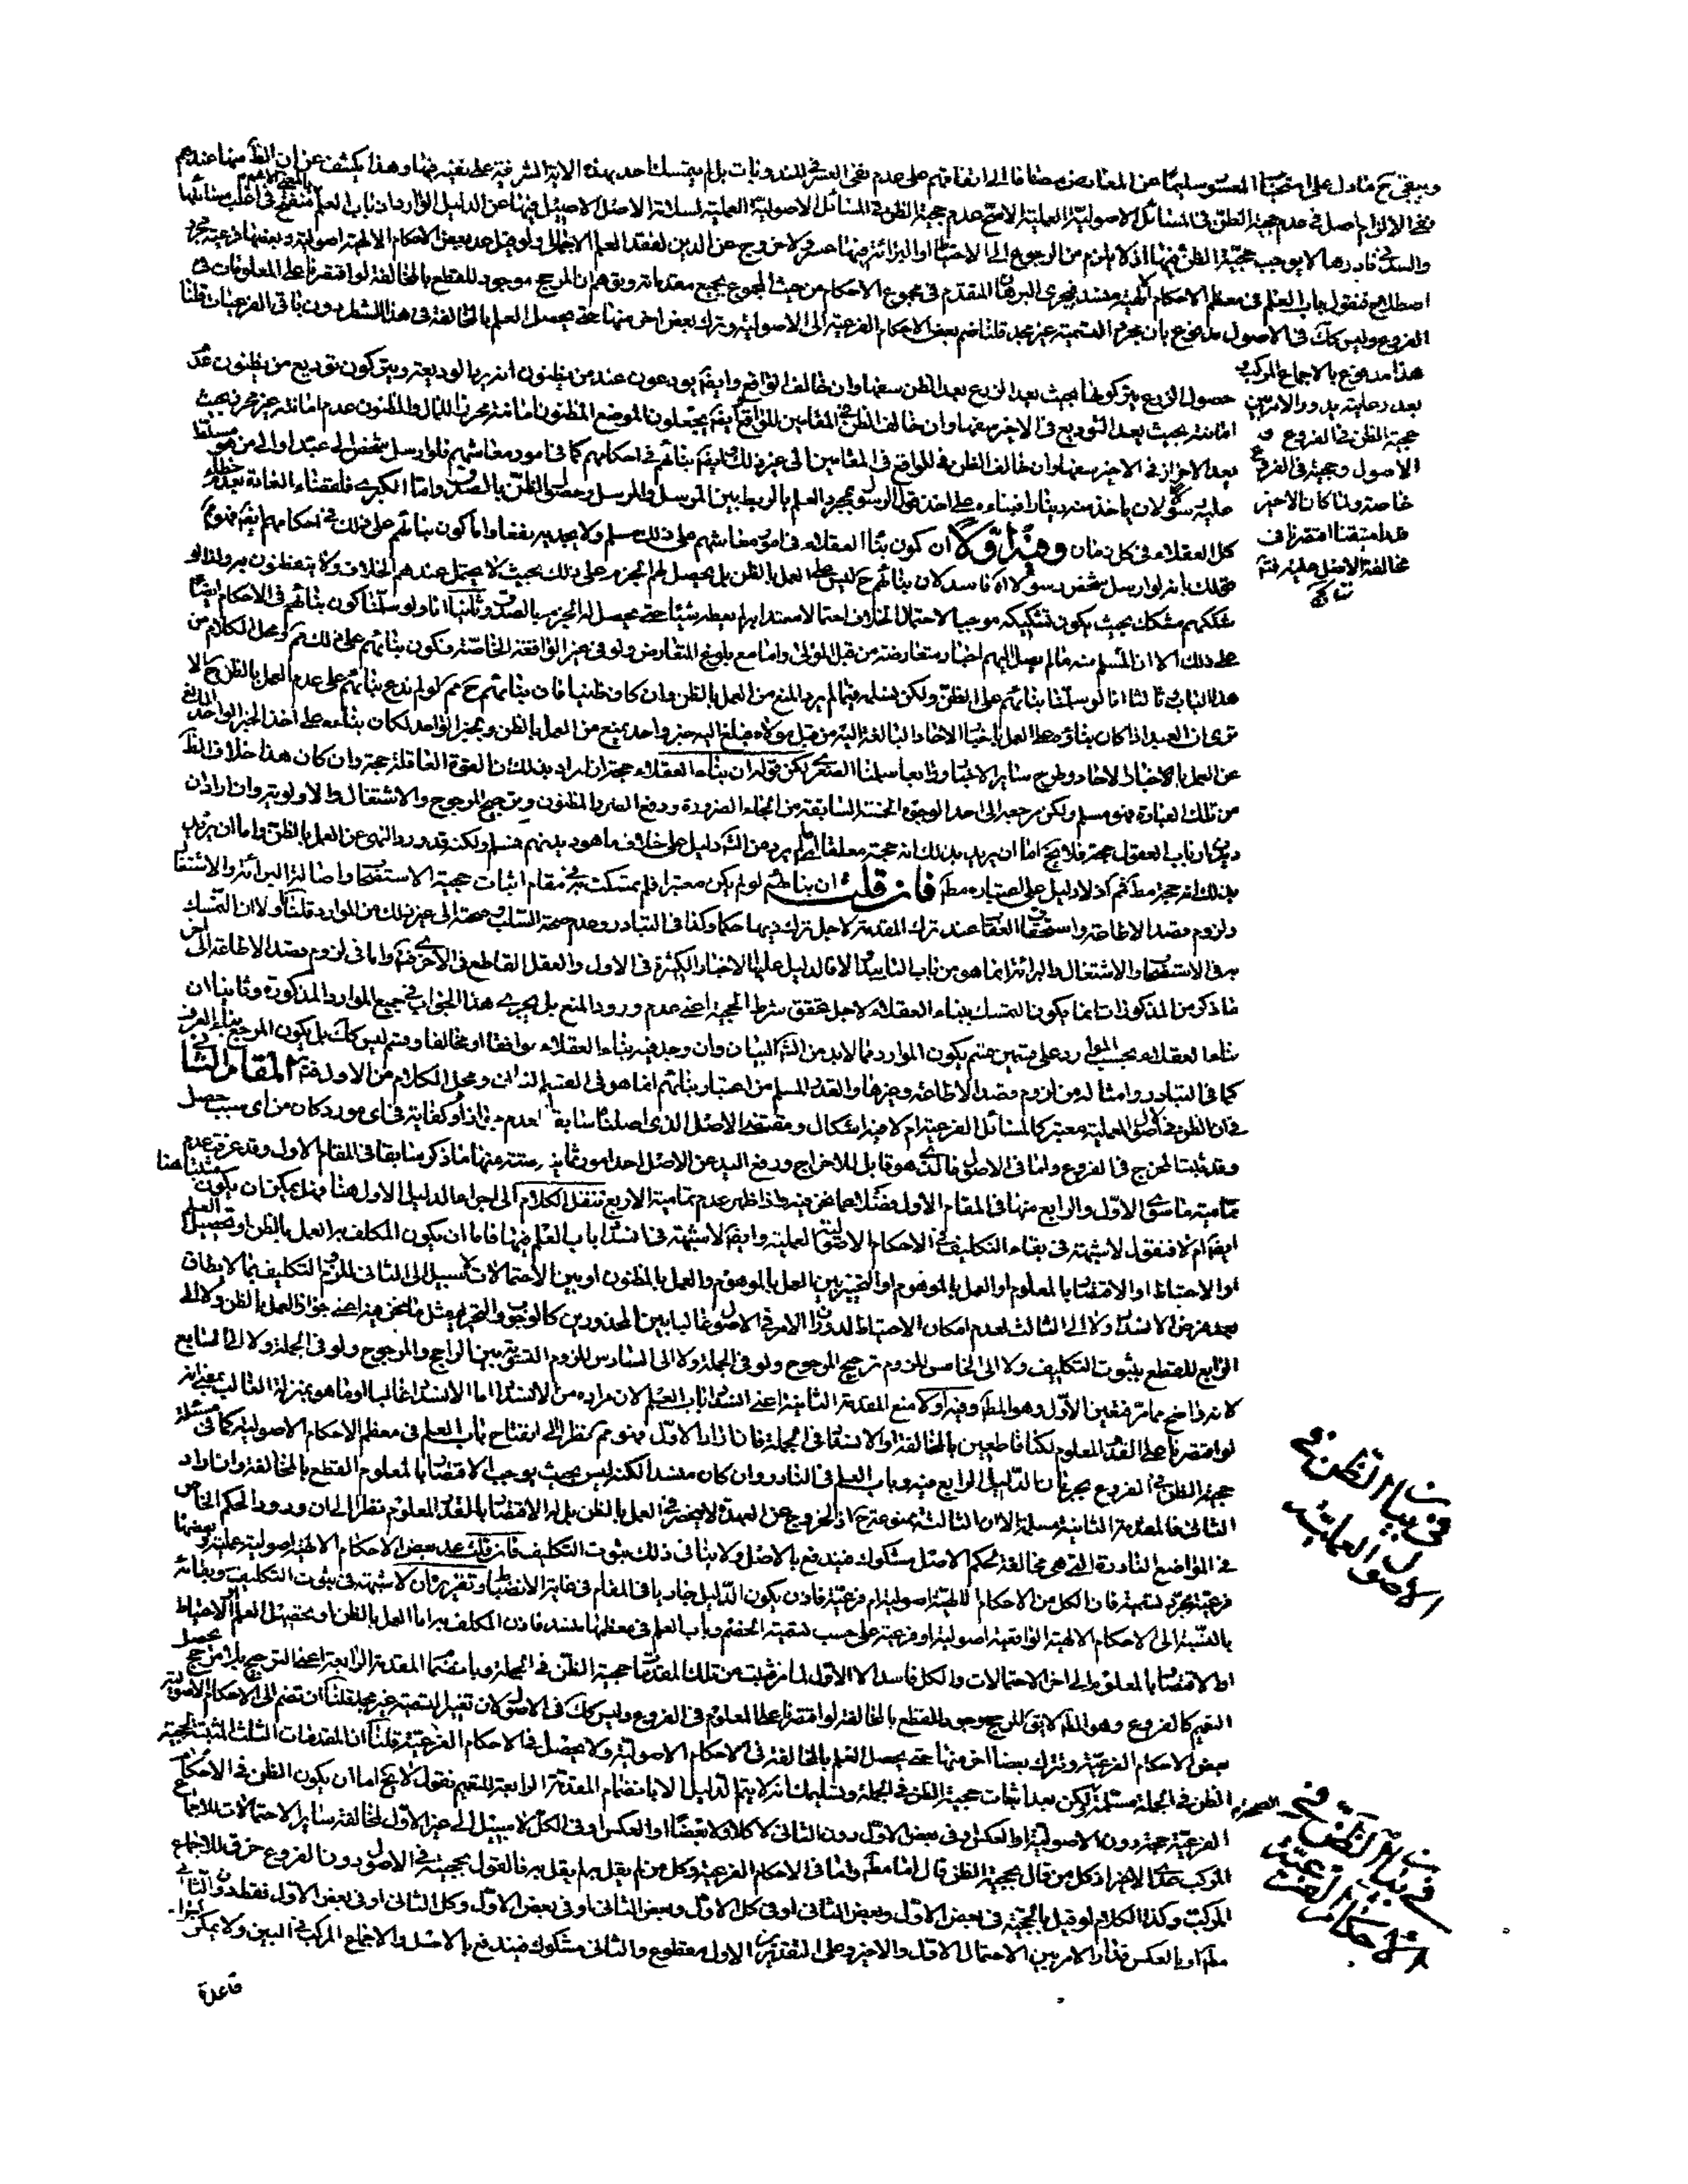 ويبقى ح مادل على استحباب العسر سليما عن المعارض مضافا الى اتفاقهم على عدم نفى العسر فى المندوبات بل لم يتمسك احد بهذه الاية الشريفة على نفيه فيها وهذا يكشف عن ان الظ منها عندهم
نفى الالزام اصل فى عدم حجية الظن فى المسائل الاصولية العملية الاصح عدم حجية الظن فى المسائل الاصولية العملية لسلامة الاصل الاصيل فيها عن الدليل الوارد لان باب العلم بالمعنى الاعم منفتح فى اغلب مسائلها
والسد فى نادرها لا يوجب حجية الظن فيها اذ لا يلزم من الرجوع الى الاحتياط او البرائة فيها عسر ولا خروج عن الدين لفقد العلم الاجمالى ولو قيل عد بعض الاحكام الالهية اصولية وبعضها فرعية مجرد
اصطلاح فنقول باب العلم فى معظم الاحكام الالهية منسد فيجرى البرهان المتقدم فى مجموع الاحكام من حيث المجموع بجميع مقدماته وتوهم ان المرجح موجود للقطع بالمخالفة لو اقتصرنا على المعلومات فى
الفروع وليس كك فى الاصول مدفوع بان مجرد التسمية غير مجد قلنا ضم بعض الاحكام الفرعية الى الاصولية وترك بعض اخر منها حتى يحصل العلم بالمخالفة فى هذا الشطر دون باقى الفرعيات قلنا
هذا مدفوع بالاجماع المركب
بعد رعايته يدور الامر بين
حجية الظن فى الفروع و
الاصول وحجيته فى الفروع
خاصة ولما كان الاخير
قدرا متيقنا اقتصرنا فى
مخالفة الاصل عليه فتم
حصول الربح يتركونها بحيث بعد الربح بعد الظن سفها وان خالف الواقع وايضا يودعون عند من يظنون انه يرد الوديعة ويتركون توديع من يظنون عدم
امانته بحيث بعد التوديع فى الاخير سفها وان خالف الظن فى المقامين للواقع وايضا يجعلون الموضع المظنون امانته محرزا للمال والمظنون عدم امانته غير محرز بحيث
بعد الاحراز فى الاخير سفها وان خالف الظن للواقع فى المقامين الى غير ذلك وايضا بنائهم فى احكامهم كما فى امور معاشهم فلو ارسل شخص الى عبده او الى من هو مسلط
عليه رسولا لان ياخذ منه دينارا فبناءه على اخذ قول الرسول بمجرد العلم بالربط بين المرسل والمرسل وحصول الظن بالصدق واما الكبرى فلقضاء العادة بعدم خطاء
كل العقلاء فى كل زمان وفيه اولا ان كون بناء العقلاء فى امور معاشهم على ذلك مسلم ولا يجديه نفعا واما كون بنائهم على ذلك فى احكامهم ايضا فمم
قولك بانه لو ارسل شخص رسولا اه فاسد لان بنائهم ح ليس على العمل بالظن بل يحصل لهم الجزم على ذلك بحيث لا يحتمل عندهم الخلاف ولا يتفطنون به ولذا لو
شككهم مشكك بحيث يكون تشكيكه موجبا لاحتمال الخلاف احتمالا معتدا به لم يعطه شيئا حتى يحصل له الجزم بالصدق وثانيا انا لو سلمنا كون بنائهم فى الاحكام ايضا
على ذلك الا ان المسلم منه ما لم يصل اليهم اخبار متعارضة من قبل المولى واما مع بلوغ المتعارض ولو فى غير الواقعة الخاصة فكون بنائهم على ذلك مم ومحل الكلام من
هذا الباب وثالثا انا لو سلمنا بنائهم على الظن ولكن نسلمه فيما لم يرد المنع من العمل بالظن وان كان ظنيا فان بنائهم ح مم كو لم ندع بنائهم على عدم العمل بالظن ح الا
ترى ان العبد اذا كان بناؤه على العمل باخبار الاحاد البالغة اليه من قبل مولاه فبلغ اليه خبر واحد يمنع من العمل بالظن وبخبر الواحد لكان بناءه على اخذ الخبر الواحد المانع
عن العمل بالاخبار الاحاد وطرح ساير الاخبار ورابعا سلمنا الصغرى لكن قوله ان بناء العقلاء حجة ان اراد بذلك ان القوة العاقلة حجة وان كان هذا خلاف الظ
من تلك العبارة فهو مسلم ولكن مرجعه الى احد الوجوه الخمسة السابقة من الجاء الضرورة ودفع الضرر المظنون وترجيح المرجوح والاشتغال والاولوية وان اراد ان
ديدن ارباب العقول حجة فلا يخ اما ان يريد بذلك انه حجة معلقا ما لم يرد من الش دليل على خلاف ما هو ديدنهم فمسلم ولكن قد ورد النهى عن العمل بالظن واما ان يريد
بذلك انه حجة مط فمم اذ لا دليل على اعتباره مط فان قلت ان بنائهم لو لم يكن معتبرا فلم يتمسكت به فى مقام اثبات حجية الاستصحاب واصالة البرائة والاشتغال
ولزوم قصد الاطاعة واستحقاق العقاب عند ترك المقدمة لاجل ترك ذيها حكما وكذا فى التبادر وعدم صحة السلب وصحته الى غير ذلك من الموارد قلنا اولا ان التمسك
به فى الاستصحاب والاشتغال والبرائة انما هو من باب التاييد والا فالدليل عليها الاخبار الكثيرة فى الاول والعقل القاطع فى الاخرين واما فى لزوم قصد الاطاعة الى اخر
ما ذكر من المذكورات انما يكون التمسك ببناء العقلاء لاجل تحقق شرط الحجية اعنى عدم ورود المنع بل يجرى هذا الجواب فى جميع الموارد المذكورة وثانيا ان
بناء العقلاء بحسب الموارد على قسمين قسم يكون الموارد مما لا بد من الش البيان وان وجد فيه بناء العقلاء موافقا او مخالفا وقسم ليس كك بل يكون المرجع بناء العرف
كما فى التبادر وامثاله من لزوم قصد الاطاعة وغيرها والقدر المسلم من اعتبار بنائهم انما هو فى القسم الثانى ومحل الكلام من الاول فتم المقام الثا
فى ان الظن فى الاصول العملية معتبر كالمسائل الفرعية ام لا فيه اشكال ومقتضى الاصل الذى اصلناه سابقا عدم كفايته فى اى مورد كان من اى سبب حصل
وقد ثبت المخرج فى الفروع واما فى الاصول فالذى هو قابل للاخراج ورفع اليد عن الاصل احد امور ثمانية ستة منها ما ذكر سابقا فى المقام الاول وقد عرفت عدم
تمامية ما سوى الاول والرابع منها فى المقام الاول فضلا عما نحن فيه واذا ظهر عدم تمامية الاربع ننقل الكلام الى اجراء الدليل الاول هنا فهل يمكن ان يكون مثبتا هنا
ايضا ام لا فنقول لا شبهة فى بقاء التكليف فى الاحكام الاصولية العملية وايضا لا شبهة فى انسداد باب العلم فيها فاما ان يكون المكلف به العمل بالظن او تحصيل العلم
او الاحتياط او الاقتصار بالمعلوم او العمل بالموهوم او التخيير بين العمل بالموهوم والعمل بالمظنون او بين الاحتمالات لا سبيل الى الثانى للزوم التكليف بما لا يطاق
بعد فرض الانسداد ولا الى الثالث لعدم امكان الاحتياط لدوران الامر فى الاصول غالبا بين المحذورين كالوجوب والتحريم مثل ما نحن فيه اعنى جواز العمل بالظن ولا الى
الرابع للقطع بثبوت التكليف ولا الى الخامس للزوم ترجيح المرجوح ولو فى الجملة ولا الى السادس للزوم التسوية بين الراجح والمرجوح ولو فى الجملة ولا الى السابع
لانه واضح مما مر فتعين الاول وهو المط وفيه اولا منع المقدمة الثانية اعنى انسداد باب العلم لان مراده من الانسداد اما الانسداد غالبا او ما هو بمنزلة الغالب بمعنى انه
لو اقتصرنا على القدر المعلوم لكنا قاطعين بالمخالفة او الانسداد فى الجملة فان اراد الاول فهو مم نظرا الى انفتاح باب العلم فى معظم الاحكام الاصولية كما فى مسئلة
حجية الظن فى الفروع بجريان الدليل الرابع فيه وباب العلم فى النادر وان كان منسدا لكنه ليس بحيث يوجب الاقتصار بالمعلوم القطع بالمخالفة وان اراد
الثانى فالمقدمة الثانية مسلمة الا ان الثالثة ممنوعة ح اذ الخروج عن العهدة لا ينحصر فى العمل بالظن بل له الاقتصار بالقدر المعلوم نظرا الى ان ورود الحكم الخاص
فى المواضع النادرة التى هى مخالفة لحكم الاصل مشكوك فيندفع بالاصل ولا ينافى ذلك بثبوت التكليف فان قلت عد بعض الاحكام الالهية اصولية عملية وبعضها
فرعية مجرد تسمية فان الكل من الاحكام الالهية اصولية ام فرعية فاذن يكون الدليل جاريا فى المقام فى غاية الانضباط وتقريره ان لا شبهة فى ثبوت التكليف وبقائه
بالنسبة الى الاحكام الالهية الواقعية اصولية او فرعية على حسب تسمية الخصم وباب العلم فى معظمها منسد فاذن المكلف به اما العمل بالظن او تحصيل العلم او الاحتياط
او الاقتصار بالمعلوم الى اخر الاحتمالات والكل فاسد الا الاول لما مر فثبت من تلك المقدمات حجية الظن فى الجملة وبانضمام المقدمة الرابعة اعنى الترجيح بلا مرجح يحصل
التعميم كالفروع وهو المط لا يق المرجح موجود للقطع بالمخالفة لو اقتصرنا على المعلوم فى الفروع وليس كك فى الاصول لان تغيير التسمية غير مجد قلنا ان تضم الى الاحكام الاصولية
بعض الاحكام الفرعية وتترك بعضا اخر منها حتى يحصل العلم بالمخالفة فى الاحكام الاصولية ولا يحصل فى الاحكام الفرعية قلنا ان المقدمات الثلث المثبتة لحجية
الظن فى الجملة مسلمة لكن بعد اثبات حجية الظن فى الجملة وتسليمك انه لا يتم الدليل الا بانضمام المقدمة الرابعة للتعميم نقول لا يخ اما ان يكون الظن فى الاحكام
الفرعية حجة دون الاصولية او العكس او فى بعض الاول دون الثانى لا كلا ولا بعضا او العكس او فى الكل لا سبيل الى غير الاول لمخالفة ساير الاحتمالات للاجماع
المركب عدا الاخير اذ كل من قال بحجية الظن قال اما مط واما فى الاحكام الفرعية وكل من لم يقل به لم يقل به فالقول بحجيته فى الاصول دون الفروع خرق للاجماع
المركب وكذا الكلام لو قيل بالحجية فى بعض الاول وبعض الثانى او فى كل الاول وبعض الثانى او فى بعض الاول وكل الثانى او فى بعض الاول فقط دون الثانى
مط او بالعكس فدار الامر بين الاحتمال الاول والاخير وعلى التقديرين الاول مقطوع والثانى مشكوك فيندفع بالاصل والاجماع المركب فى البين ولا يمكن
قاعدة
فى بيان الظن فى
الاصول العملية
فى بيان الظن فى
الاحكام الفرعية